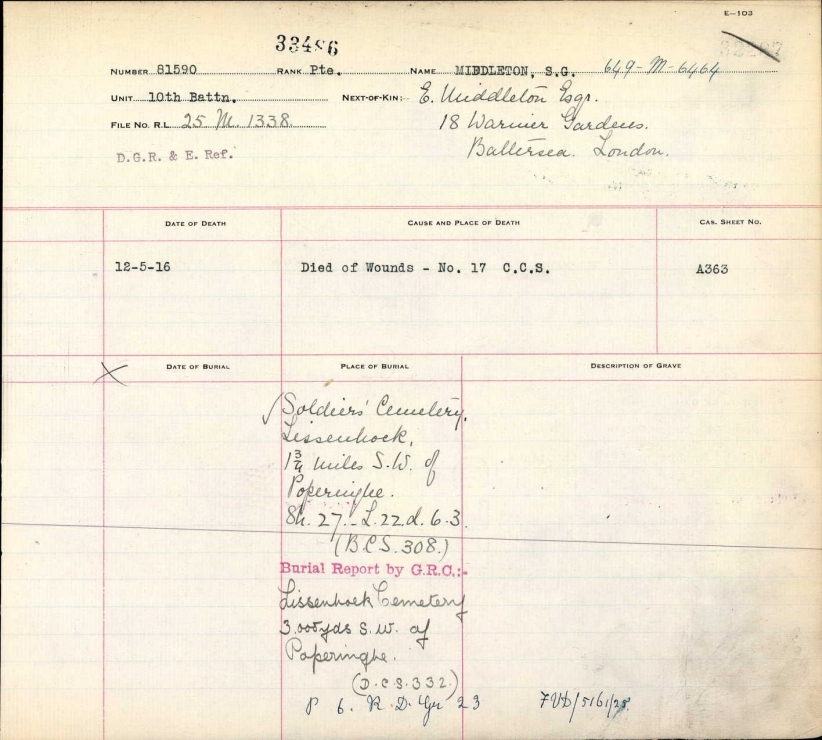 E—103
33486
NUMBER 81590 RANK Pte. NAME MIDDLETON, S.G. 649-M-6464
UNIT 10th Battn. NEXT-OF-KIN:- E. Middleton Esqr.
FILE NO. R.L. 25 M. 1338. 18 Warriner Gardens.
D.G.R. & E. Ref. Battersea. London.
DATE OF DEATH CAUSE AND PLACE OF DEATH CAS. SHEET NO.
12-5-16 Died of Wounds - No. 17 C.C.S. A363
DATE OF BURIAL PLACE OF BURIAL DESCRIPTION OF GRAVE
Soldiers' Cemetery,
Lissenhoek,
1¾ miles S.W. of
Poperinghe.
Sh. 27. - L.22.d.6.3.
(B.C.S. 308.)
Burial Report by G.R.C.:-
Lissenhoek Cemetery
3.000yds S.W. of
Poperinghe.
(D.C.S. 332.)
P 6. R.D. Gr 23